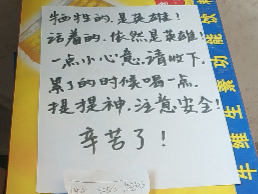 牺牲的，是英雄！
活着的，依然是英雄！
一点小心意，请收下，
累了的时候喝一点，
提提神，注意安全！
辛苦了！
牛维生素功能饮